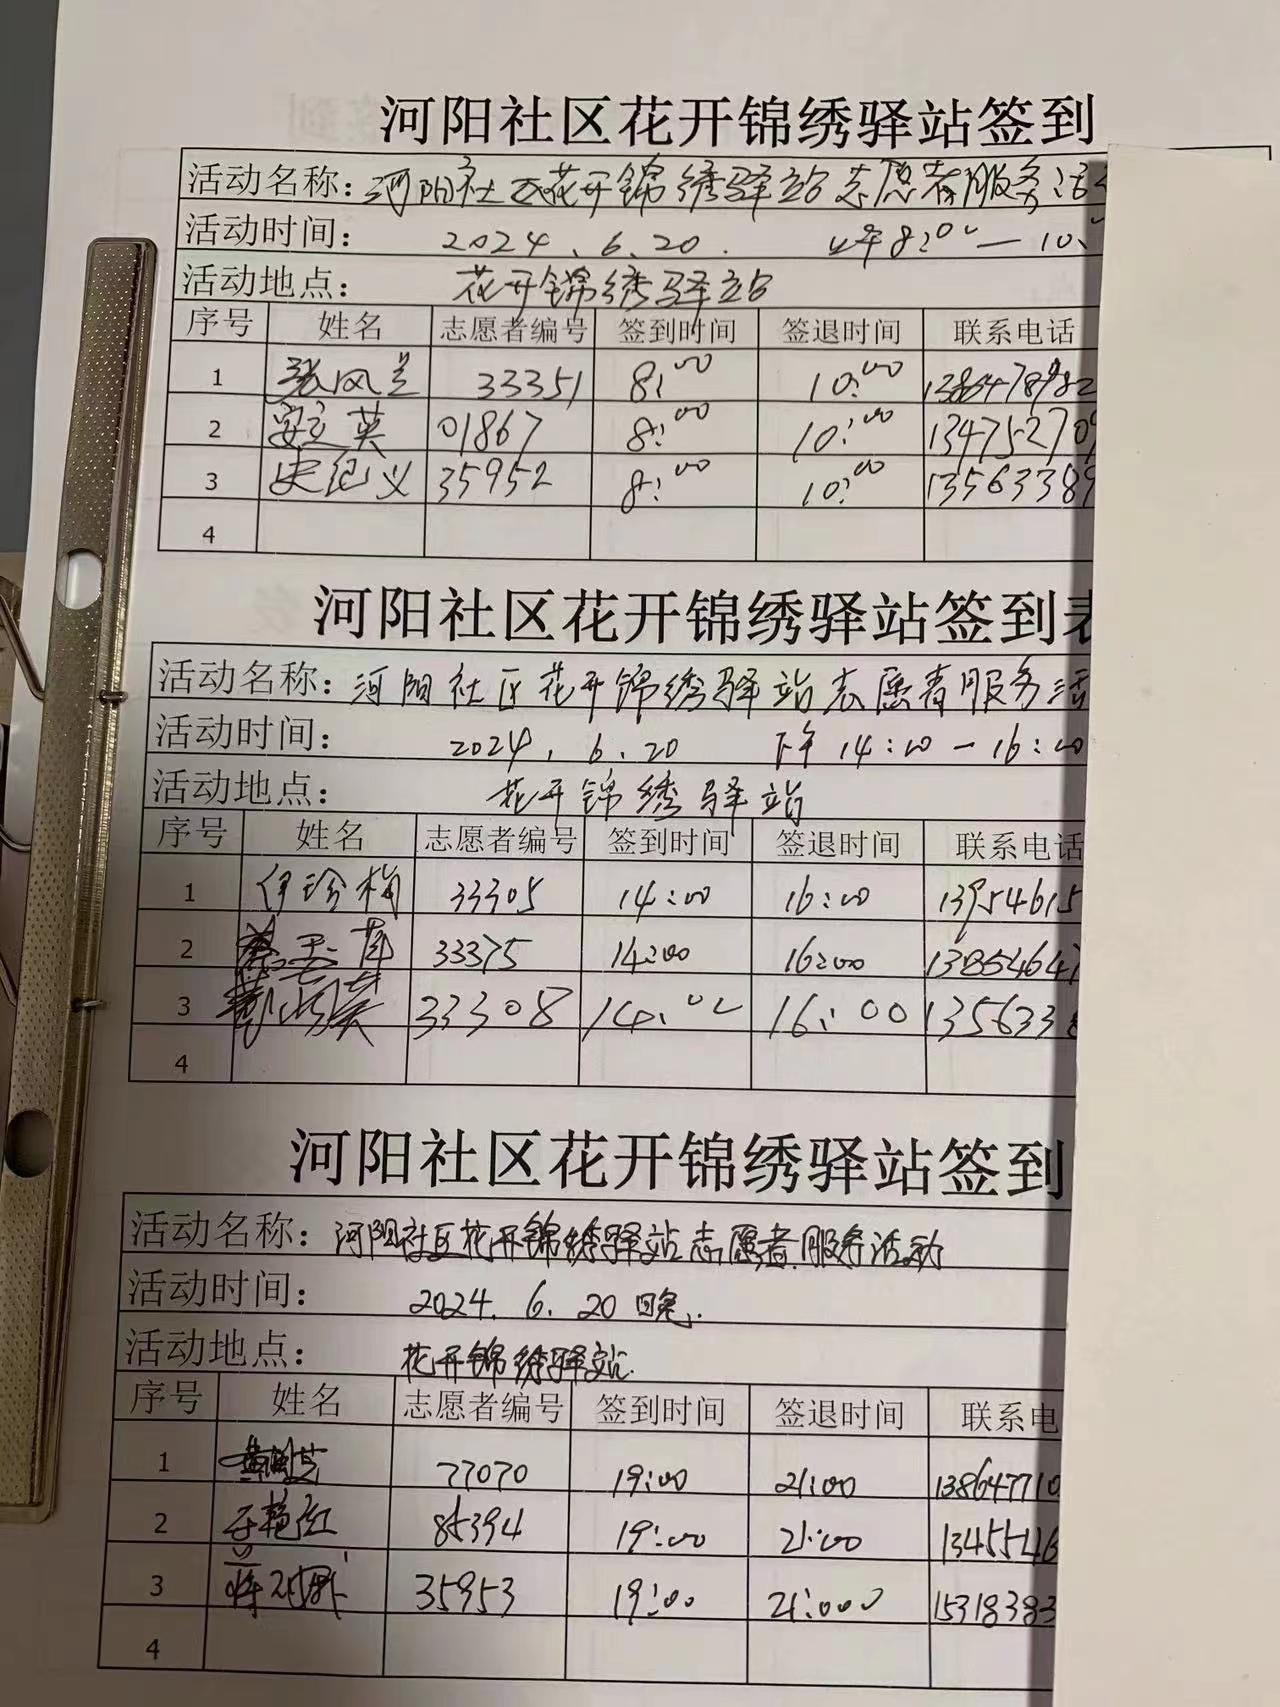 河阳社区花开锦绣驿站签到
活动名称：河阳社区花开锦绣驿站志愿者服务活
活动时间： 2024.6.20. 上午8:00—10:0
活动地点： 花开锦绣驿站
序号 姓名 志愿者编号 签到时间 签退时间 联系电话
1 张凤兰 33351 8:00 10:00
2 安立英 01867 8:00 10:00 134752709
3 史纪义 35952 8:00 10:00 13563389
4
河阳社区花开锦绣驿站签到表
活动名称：河阳社区花开锦绣驿站志愿者服务活
活动时间： 2024.6.20 下午14:00—16:00
活动地点： 花开锦绣驿站
序号 姓名 志愿者编号 签到时间 签退时间 联系电话
1 伊珍梅 33305 14:00 16:00 13954615
2 33375 14:00 16:00 13854647
3 33308 14:00 16:00 1356338
4
河阳社区花开锦绣驿站签到
活动名称：河阳社区花开锦绣驿站志愿者服务活动
活动时间： 2024.6.20日晚.
活动地点： 花开锦绣驿站.
序号 姓名 志愿者编号 签到时间 签退时间 联系电
1 77070 19:00 21:00 138647710
2 于艳红 85394 19:00 21:00 1345546
3 35953 19:00 21:000 15318383
4